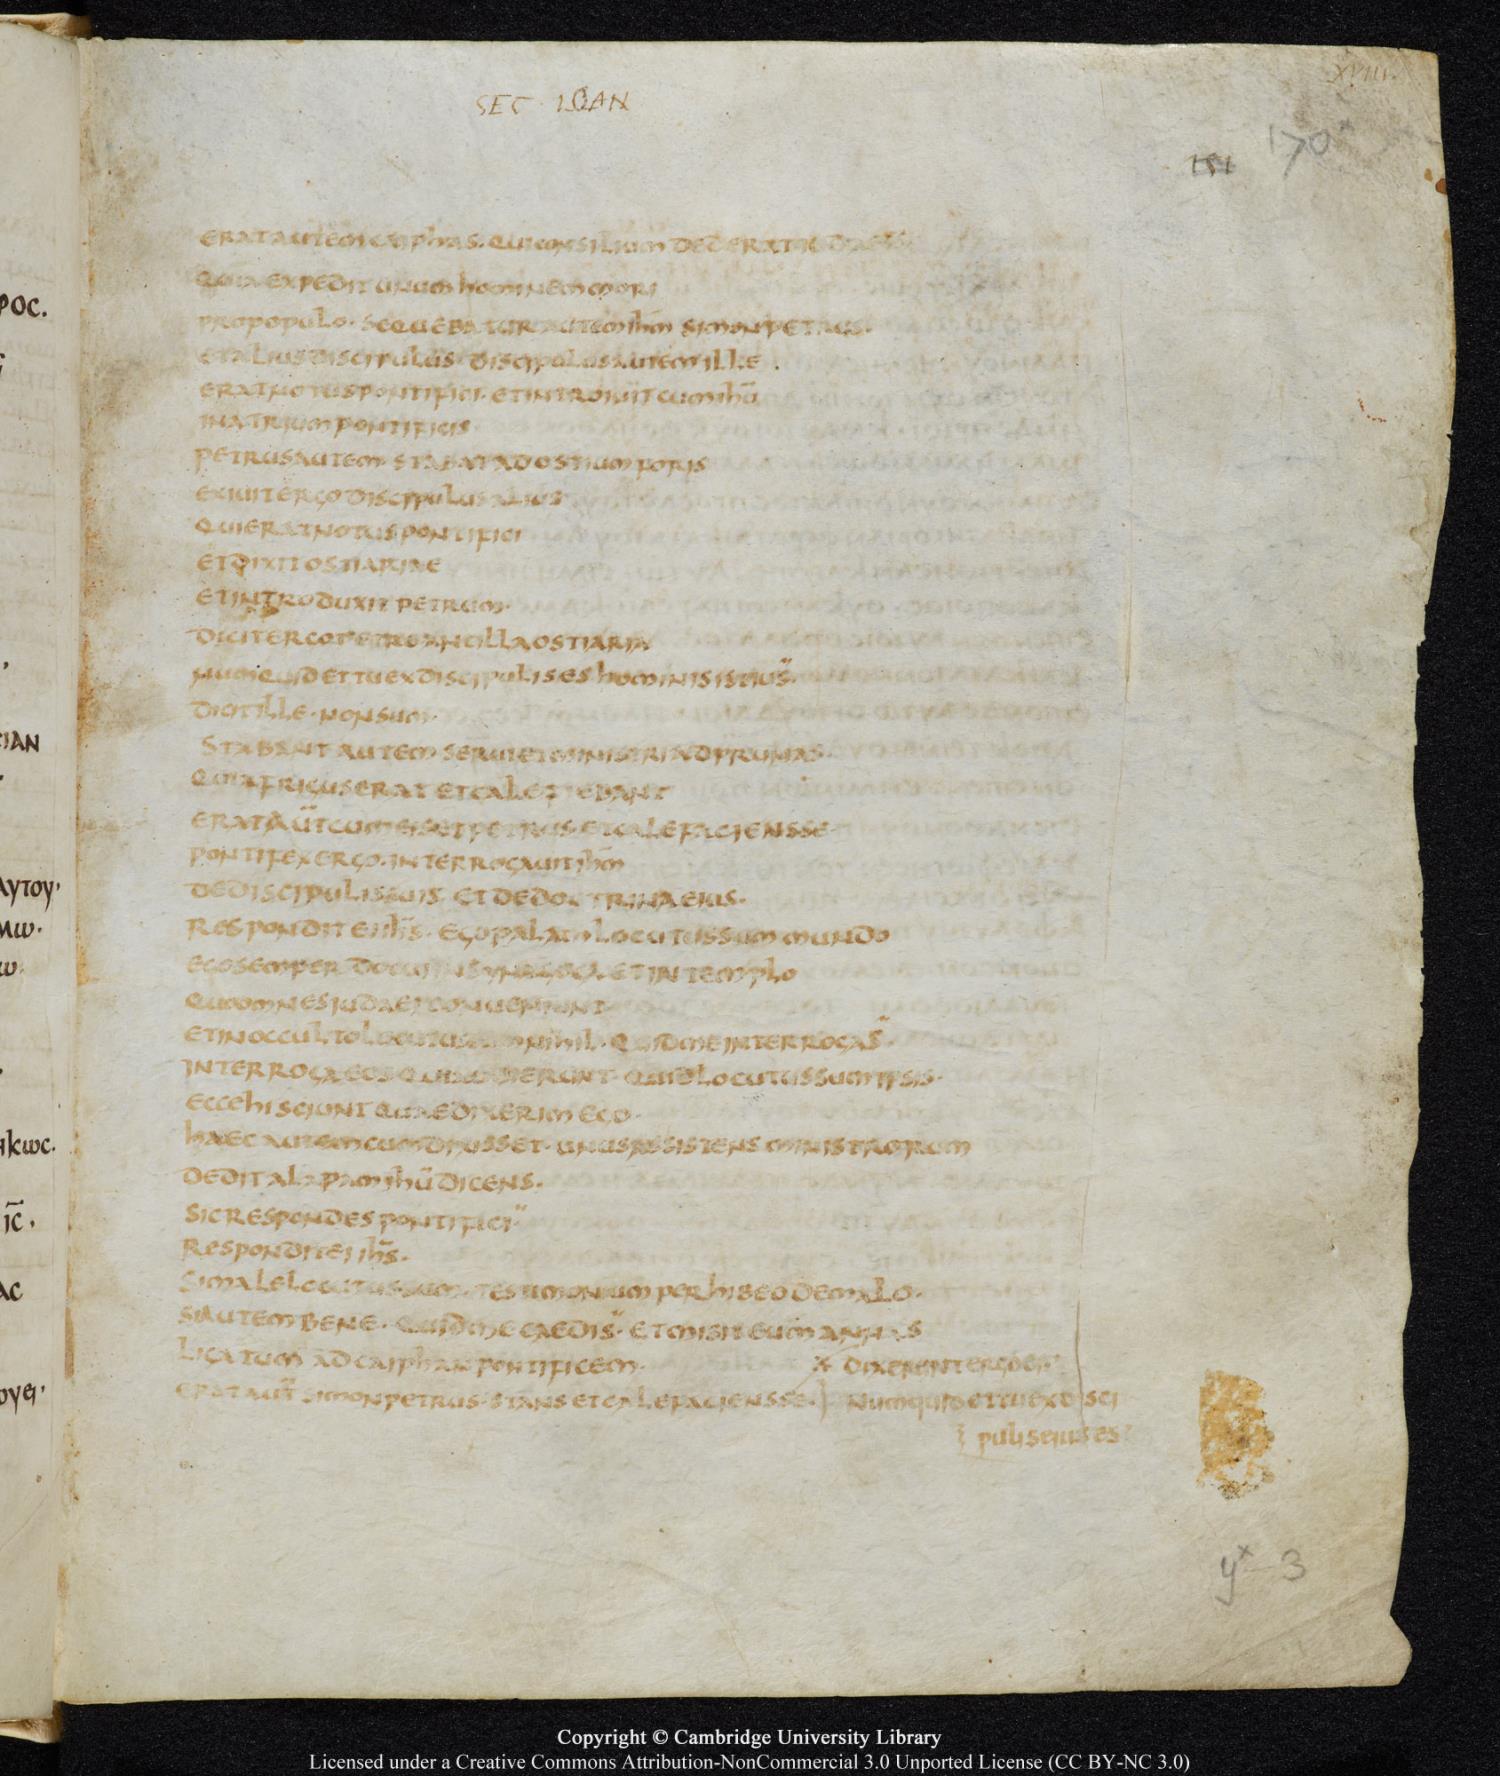 SEC · IOAN
XVIII
151 170*
ERAT AUTEM CAIPHAS· QUI CONSILIUM DEDERAT
QUIA EXPEDIT UNUM HOMINEM MORI
PRO POPULO· SEQUEBATUR AUTEM ihm̄ SIMON PETRUS·
ET ALIUS DISCIPULUS· DISCIPULUS AUTEM ILLE
ERAT NOTUS PONTIFICI· ET INTROIUIT CUM ihū
IN ATRIUM PONTIFICIS
PETRUS AUTEM STABAT AD OSTIUM FORIS
EXIUIT ERGO DISCIPULUS ALIUS
QUI ERAT NOTUS PONTIFICI
ET DIXIT OSTIARIAE
ET INTRODUXIT PETRUM·
DICIT ERGO PETRO ANCILLA OSTIARIA
NUMQUID ET TU EX DISCIPULIS ES HOMINIS ISTIUS
DICIT ILLE· NON SUM·
STABANT AUTEM SERUI ET MINISTRI AD PRUNAS·
QUIA FRIGUS ERAT ET CALEFIEBANT
ERAT AUT̄ CUM EIS ET PETRUS· ET CALEFACIENS SE·
PONTIFEX ERGO· INTERROGAUIT ihm̄
DE DISCIPULIS SUIS· ET DE DOCTRINA EIUS·
RESPONDIT EI ihs̄· EGO PALAM LOCUTUS SUM MUNDO
EGO SEMPER DOCUI IN SYNAGOGA· ET IN TEMPLO
QUO OMNES IUDAEI CONUENIUNT·
ET IN OCCULTO LOCUTUS SUM NIHIL· QUID ME INTERROGAS
INTERROGA EOS QUI AUDIERUNT· QUID LOCUTUS SUM IPSIS·
ECCE HI SCIUNT QUAE DIXERIM EGO·
HAEC AUTEM CUM DIXISSET· UNUS ASSISTENS MINISTRORUM
DEDIT ALAPAM ihū DICENS·
SIC RESPONDES PONTIFICI
RESPONDIT EI ihs̄·
SI MALE LOCUTUS SUM· TESTIMONIUM PERHIBEO DE MALO·
SI AUTEM BENE· QUID ME CAEDIS· ET MISIT EUM ANNAS
LIGATUM AD CAIPHAN PONTIFICEM·
ERAT AUT̄ SIMON PETRUS· STANS ET CALEFACIENS SE·
DIXERUNT ERGO EI·
NUMQUID ET TU EX DISCI
PULIS EIUS ES
yˣ-3
ΡΟC.
ΙΑΝ
ΑΥΤΟΥ·
ΜΩ·
Ω·
ΗΚΩC·
ΙC̄·
ΑC
ΟΥΕΙ·
Copyright © Cambridge University Library
Licensed under a Creative Commons Attribution-NonCommercial 3.0 Unported License (CC BY-NC 3.0)